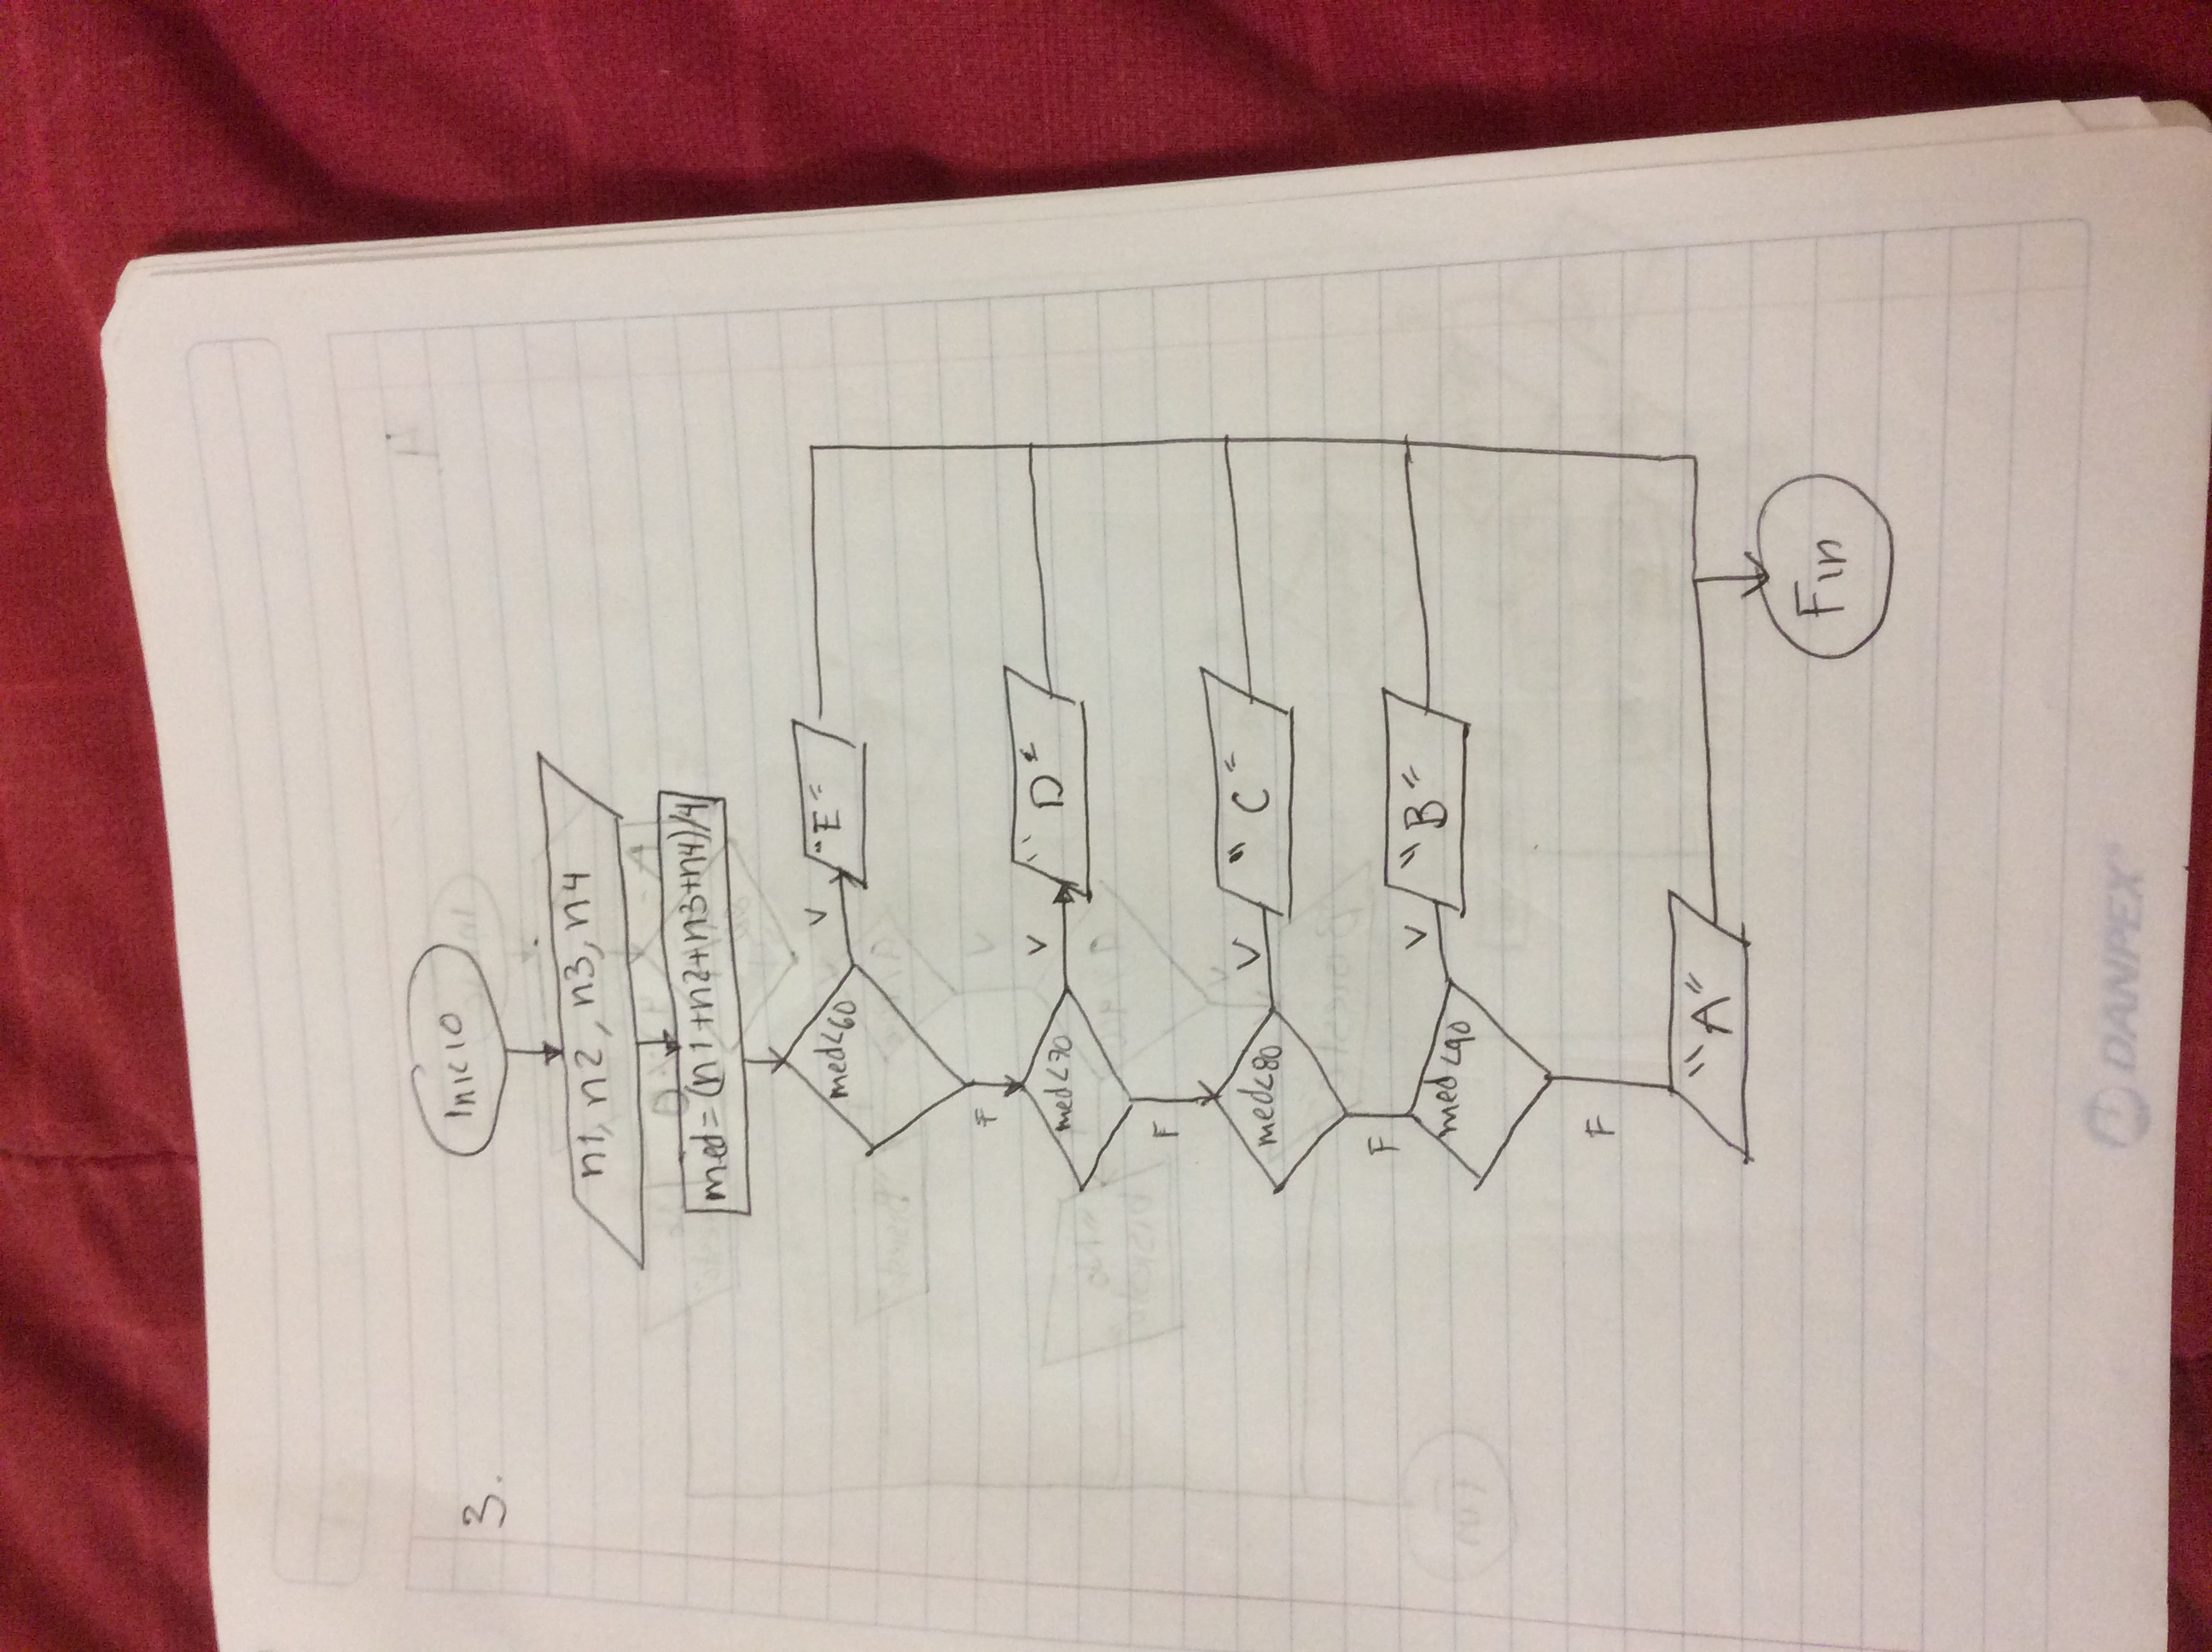 3.
Inicio
n1, n2, n3, n4
med=(n1+n2+n3+n4)/4
med<60
V
"E"
F
med<70
V
"D"
F
med<80
V
"C"
F
med<90
V
"B"
F
"A"
Fin
DANPEX